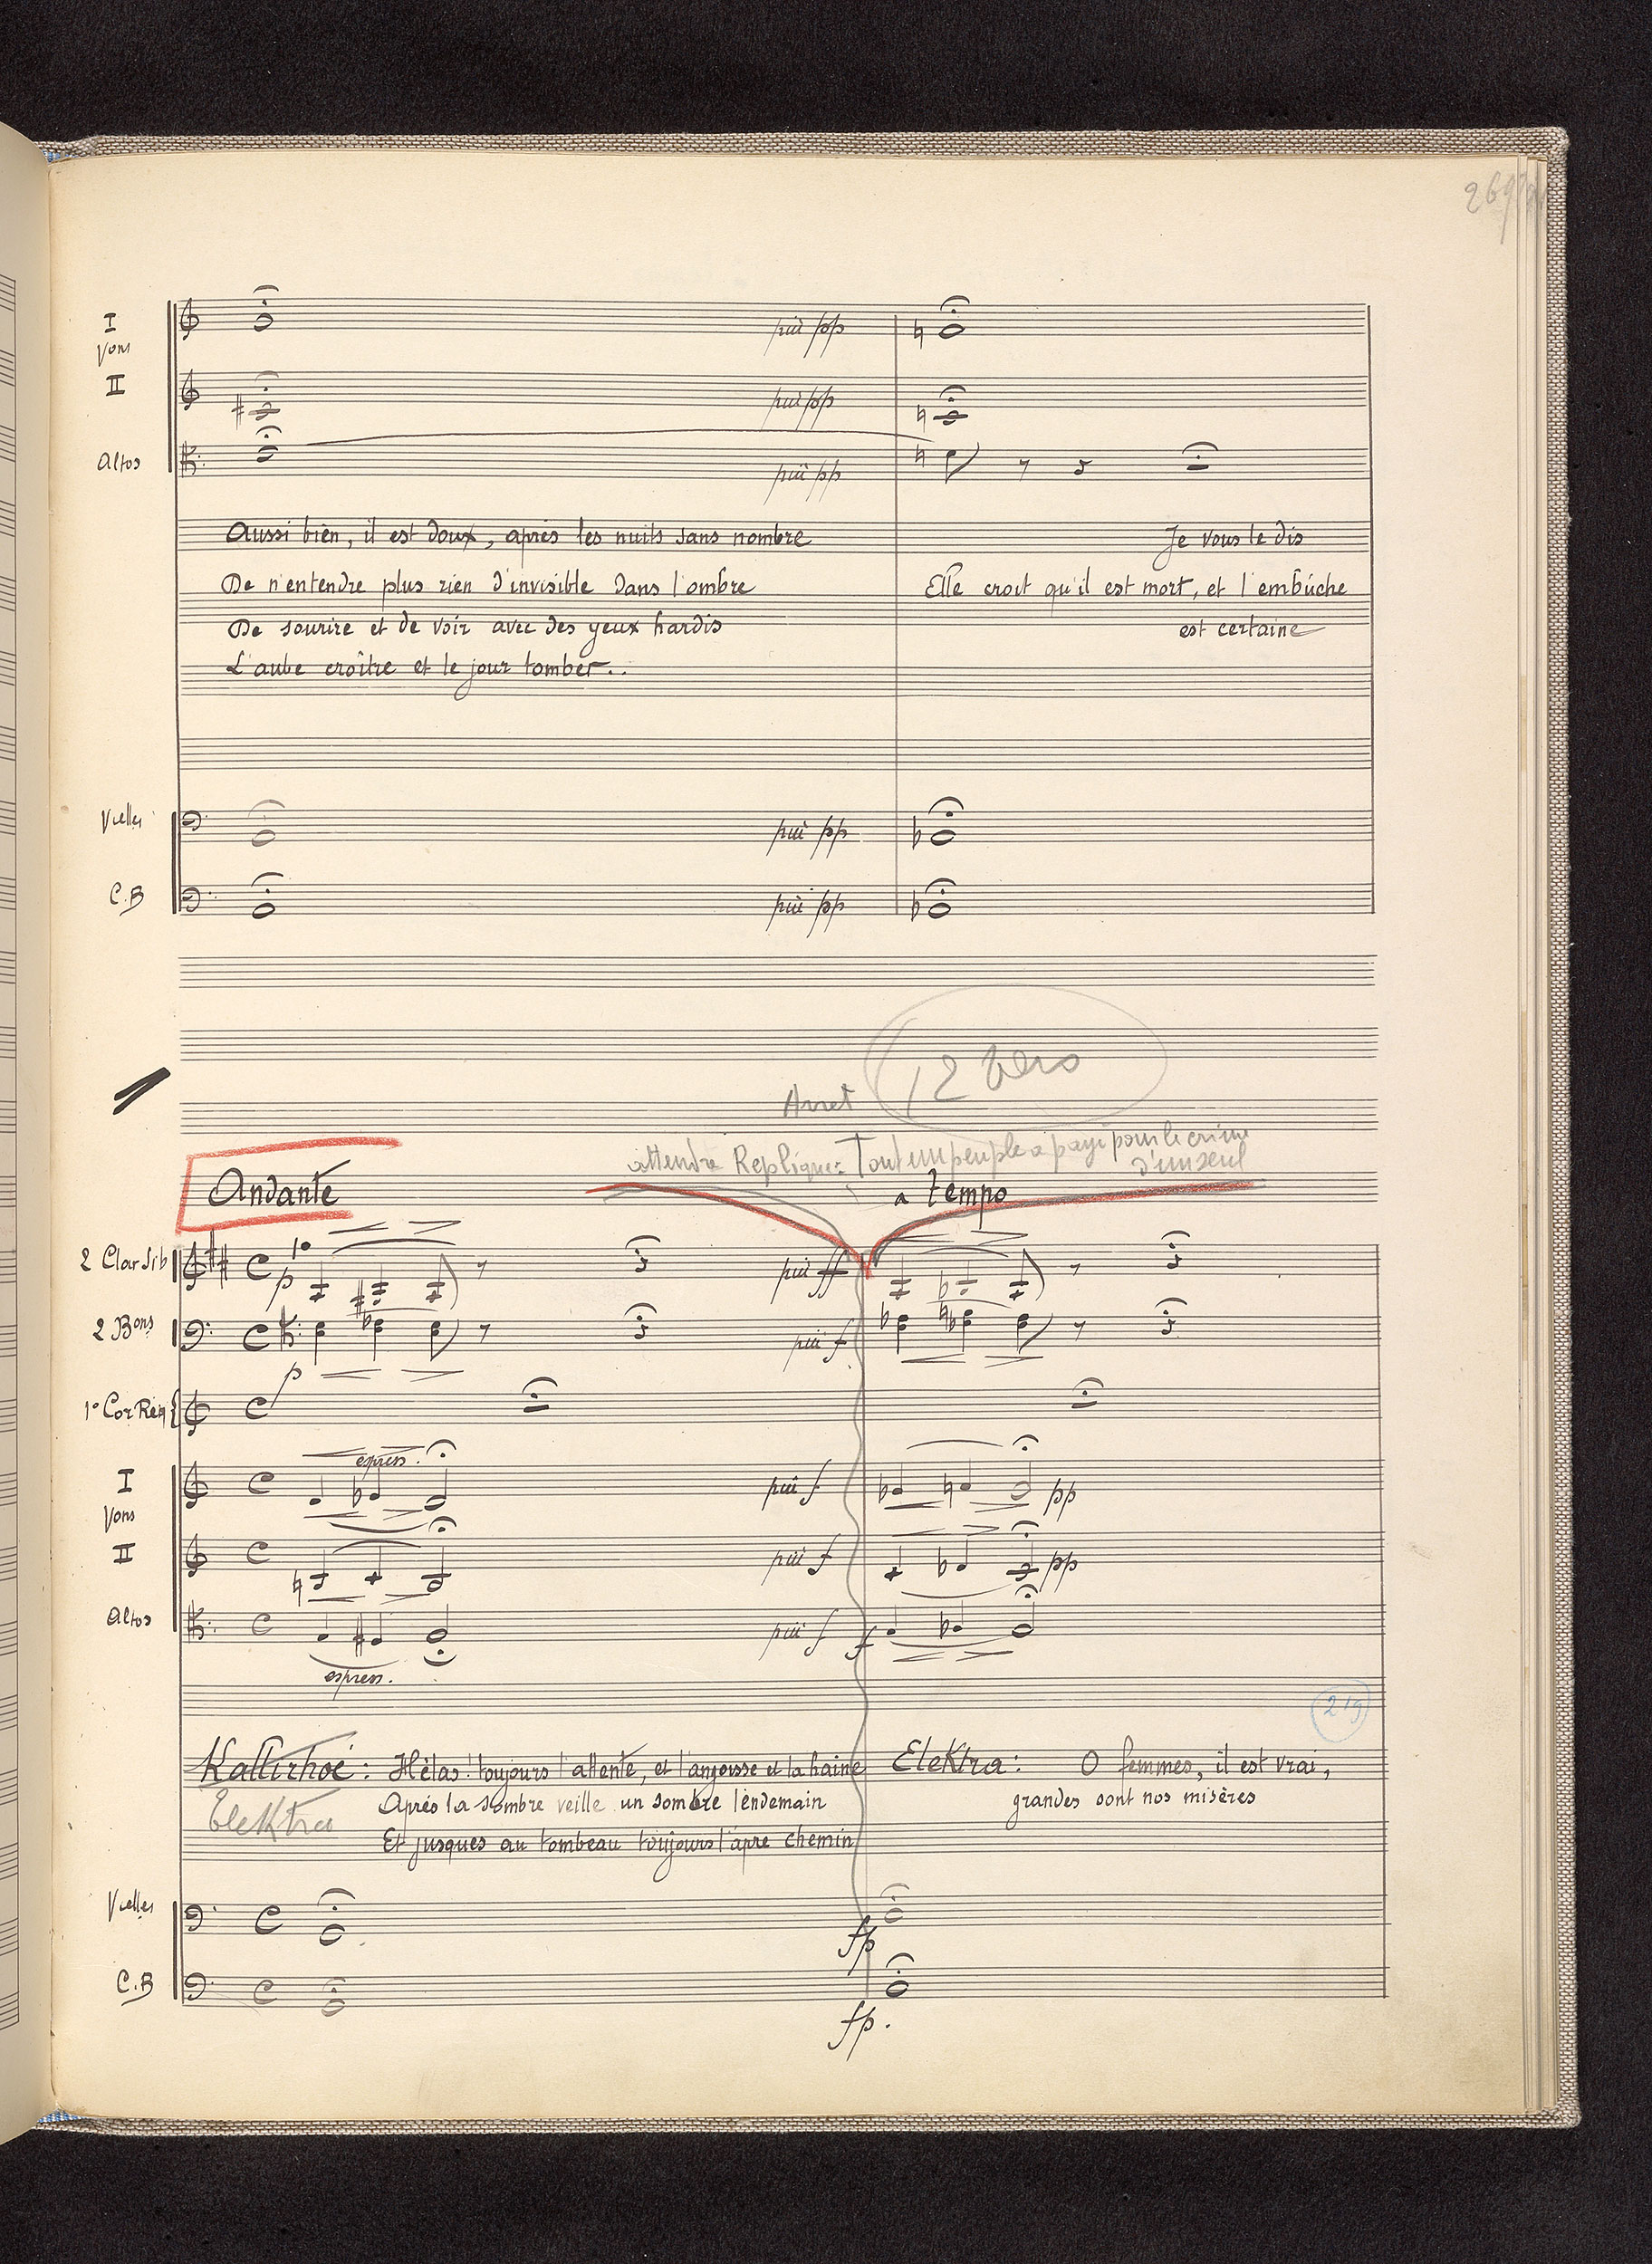 I
Vons
più pp
II
più pp
Altos
più pp
Aussi bien, il est doux, après les nuits sans nombre
Je vous le dis
De n'entendre plus rien d'invisible dans l'ombre
Elle croit qu'il est mort, et l'embûche
De sourire et de voir avec des yeux hardis
est certaine
L'aube croître et le jour tomber..
Vielles
più pp
C.B
più pp
Arret
attendre Replique: Tout un peuple a payé pour le crime
d'un seul
Andante
a tempo
2 Clar sib
1º
p
più ff
2 Bons
p
più f
1º Cor Ré
I
Vons
espress.
più f
pp
II
più f
pp
Altos
espress.
più f
f
219
Kallirhoé: Hélas! toujours l'attente, et l'angoisse et la haine
Elektra: O femmes, il est vrai,
Elektra
Après la sombre veille un sombre lendemain
grandes sont nos misères
Et jusques au tombeau toujours l'apre chemin
Vielles
fp
C.B
fp.